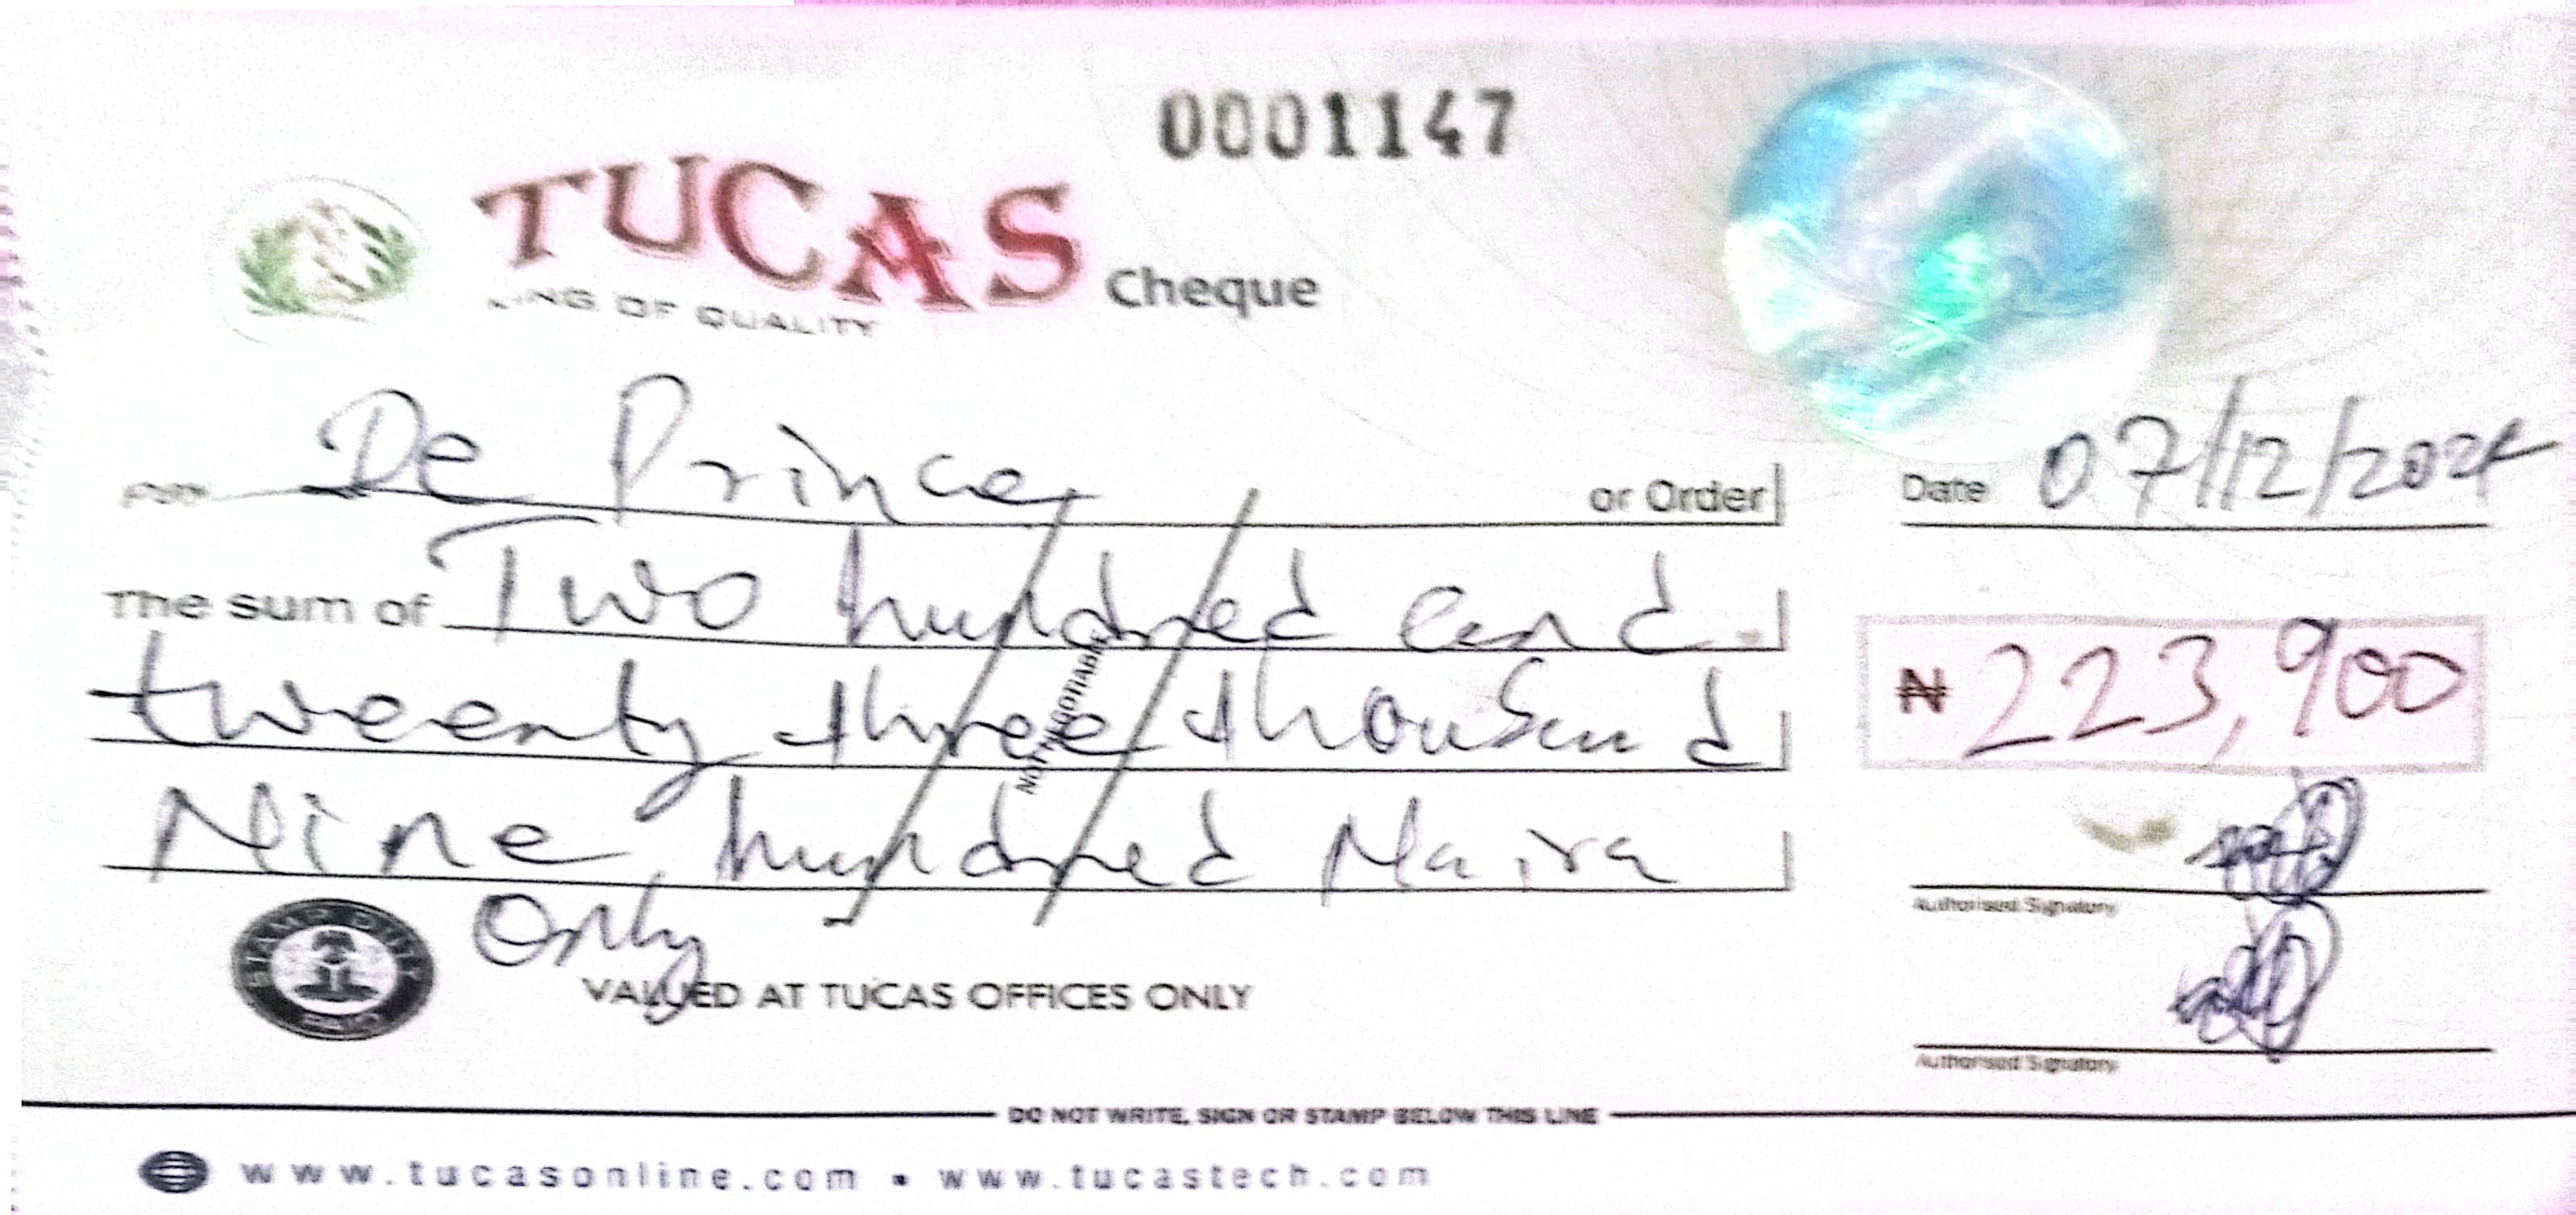 0001147
TUCAS Cheque
KING OF QUALITY
Pay De Prince or Order Date 07/12/2024
The sum of Two hundred and
tweenty three thousand ₦ 223,900
NOT NEGOTIABLE
Nine hundred Naira
Authorised Signatory
Only
STAMP DUTY PAID
VALUED AT TUCAS OFFICES ONLY
Authorised Signatory
DO NOT WRITE, SIGN OR STAMP BELOW THIS LINE
www.tucasonline.com • www.tucastech.com